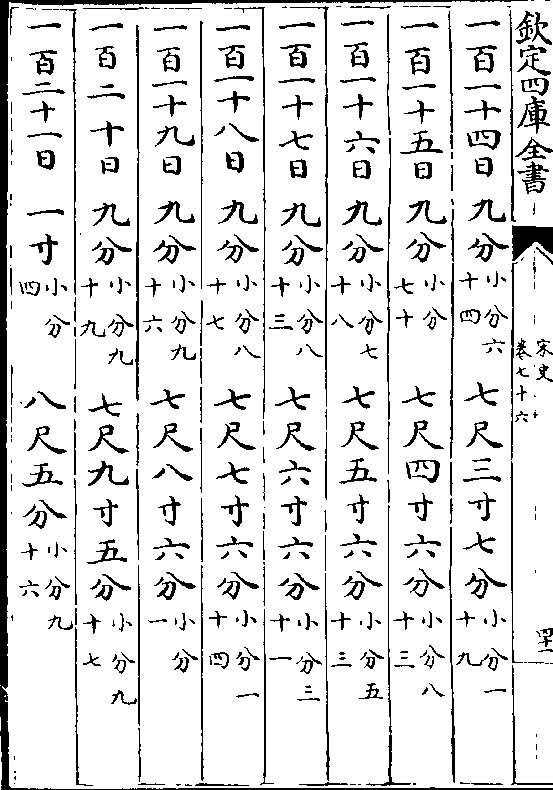 欽定四庫全書
宋史
卷七十六
一百一十四日 九分小分六十四 七尺三寸七分小分一十九
一百一十五日 九分小分七十 七尺四寸六分小分八十三
一百一十六日 九分小分七十八 七尺五寸六分小分五十三
一百一十七日 九分小分八十三 七尺六寸六分小分三十一
一百一十八日 九分小分八十七 七尺七寸六分小分一十四
一百一十九日 九分小分九十六 七尺八寸六分小分一
一百二十日 九分小分九十九 七尺九寸五分小分九十七
一百二十一日 一寸小分四 八尺五分小分九十六